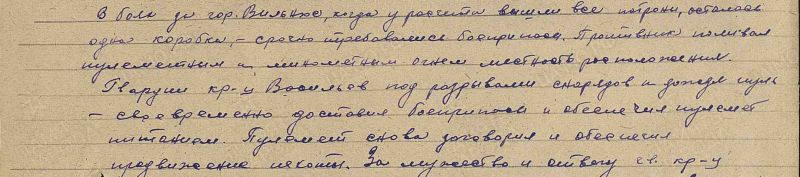 В боях за гор. Вильнюс, когда у расчета вышли все патроны, осталась
одна коробка, – срочно требовались боеприпасы. Противник поливал
пулеметным и минометным огнем местность расположения.
Гвардии кр-ц Васильев под разрывами снарядов и дождем пуль
– своевременно доставил боеприпасы и обеспечил пулемет
питанием. Пулемет снова заговорил и обеспечил
продвижение пехоты. За мужество и отвагу гв. кр-ц